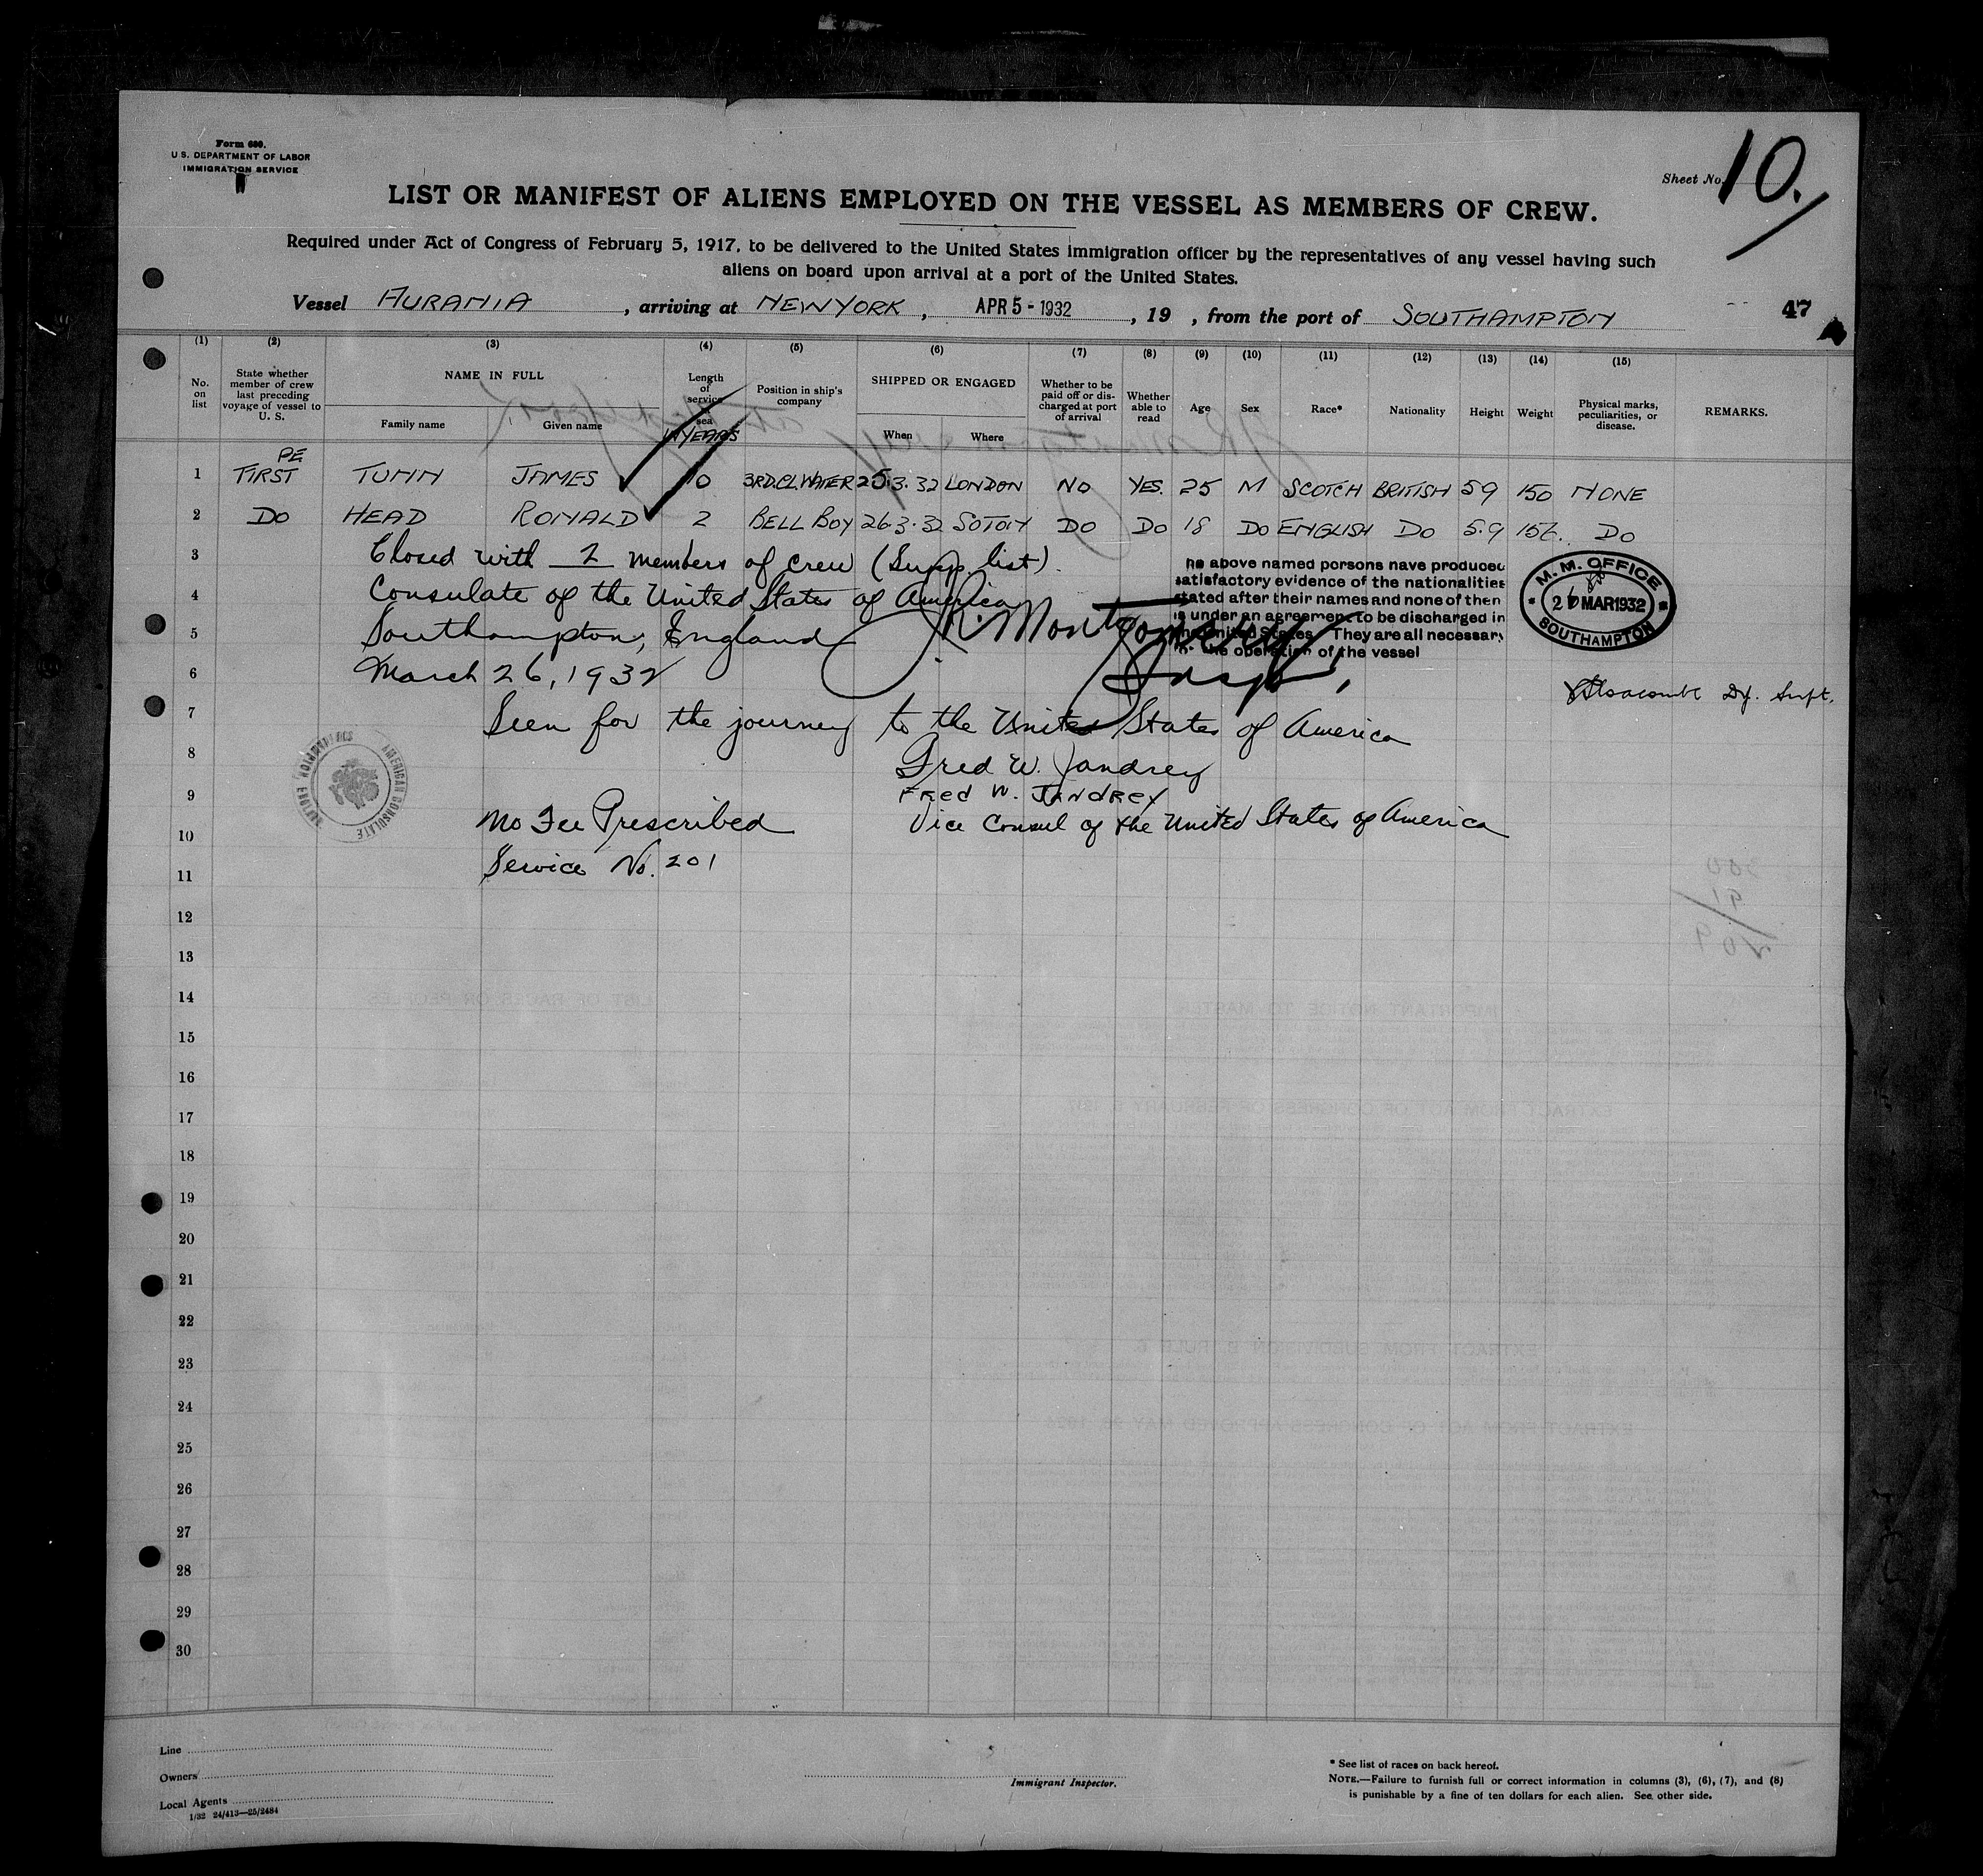 Form 680.
U. S. DEPARTMENT OF LABOR
IMMIGRATION SERVICE
Sheet No. 10.
LIST OR MANIFEST OF ALIENS EMPLOYED ON THE VESSEL AS MEMBERS OF CREW.
Required under Act of Congress of February 5, 1917, to be delivered to the United States immigration officer by the representatives of any vessel having such
aliens on board upon arrival at a port of the United States.
Vessel AURANIA, arriving at NEW YORK, APR 5 - 1932, 19 , from the port of SOUTHAMPTON 47
(1) (2) (3) (4) (5) (6) (7) (8) (9) (10) (11) (12) (13) (14) (15)
No. on list
State whether member of crew last preceding voyage of vessel to U. S.
NAME IN FULL
Family name
Given name
Length of service sea IN YEARS
Position in ship's company
SHIPPED OR ENGAGED
When
Where
Whether to be paid off or discharged at port of arrival
Whether able to read
Age
Sex
Race*
Nationality
Height
Weight
Physical marks, peculiarities, or disease.
REMARKS.
PE
1 FIRST TUNN JAMES 10 3RD.CL.WAITER 25.3.32 LONDON NO YES. 25 M SCOTCH BRITISH 59 150 NONE
2 DO HEAD RONALD 2 BELL BOY 26.3.32 SOTON DO DO 18 DO ENGLISH DO 5.9 156. DO
3 Closed with 2 members of crew (Supp. list).
4 Consulate of the United States of America
5 Southampton, England
6 March 26, 1932
J.R. Montgomery
Insp.
he above named persons have produced
satisfactory evidence of the nationalities
stated after their names and none of them
is under an agreement to be discharged in
the United States They are all necessary
for the operation of the vessel
M. M. OFFICE
26 MAR 1932
SOUTHAMPTON
Dy. Supt.
7 Seen for the journey to the United States of America
8 Fred W. Jandrey
9 FRed W. JANdREY
10 No Fee Prescribed Vice Consul of the United States of America
11 Service No. 201
AMERICAN CONSULATE
12
13
14
15
16
17
18
19
20
21
22
23
24
25
26
27
28
29
30
Line
Owners
Local Agents
1/32 24/413—25/2484
Immigrant Inspector.
* See list of races on back hereof.
NOTE.—Failure to furnish full or correct information in columns (3), (6), (7), and (8)
is punishable by a fine of ten dollars for each alien. See other side.